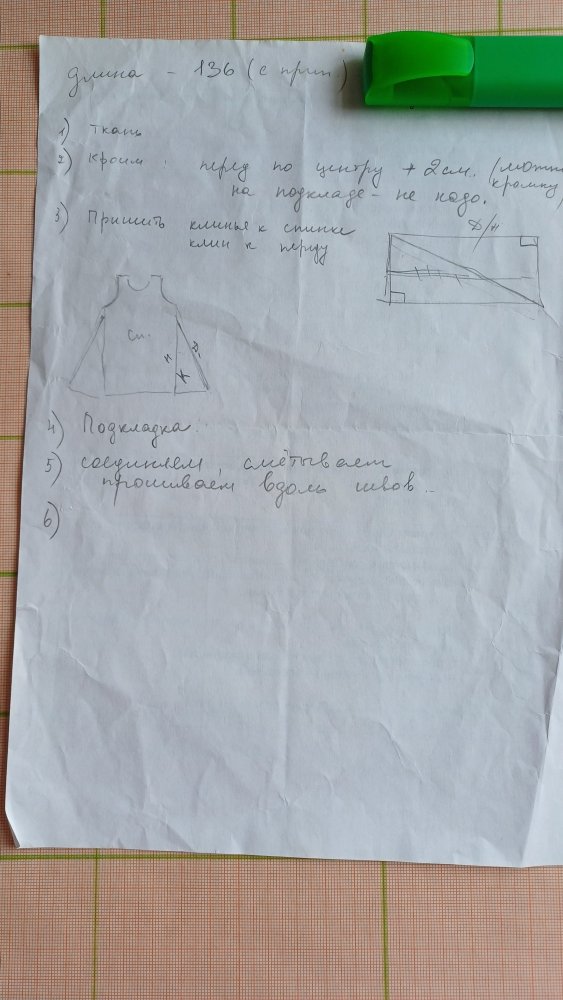 Длина - 136 (с прип.)
1) Ткань
2) Кроим: перед по центру + 2 см. (можно
кромку)
на подкладе - не надо.
3) Пришить клинья к спинке
клин к переду
Д/Н
Сп.
4) Подкладка:
5) соединяем, смётываем
прошиваем вдоль швов..
6)